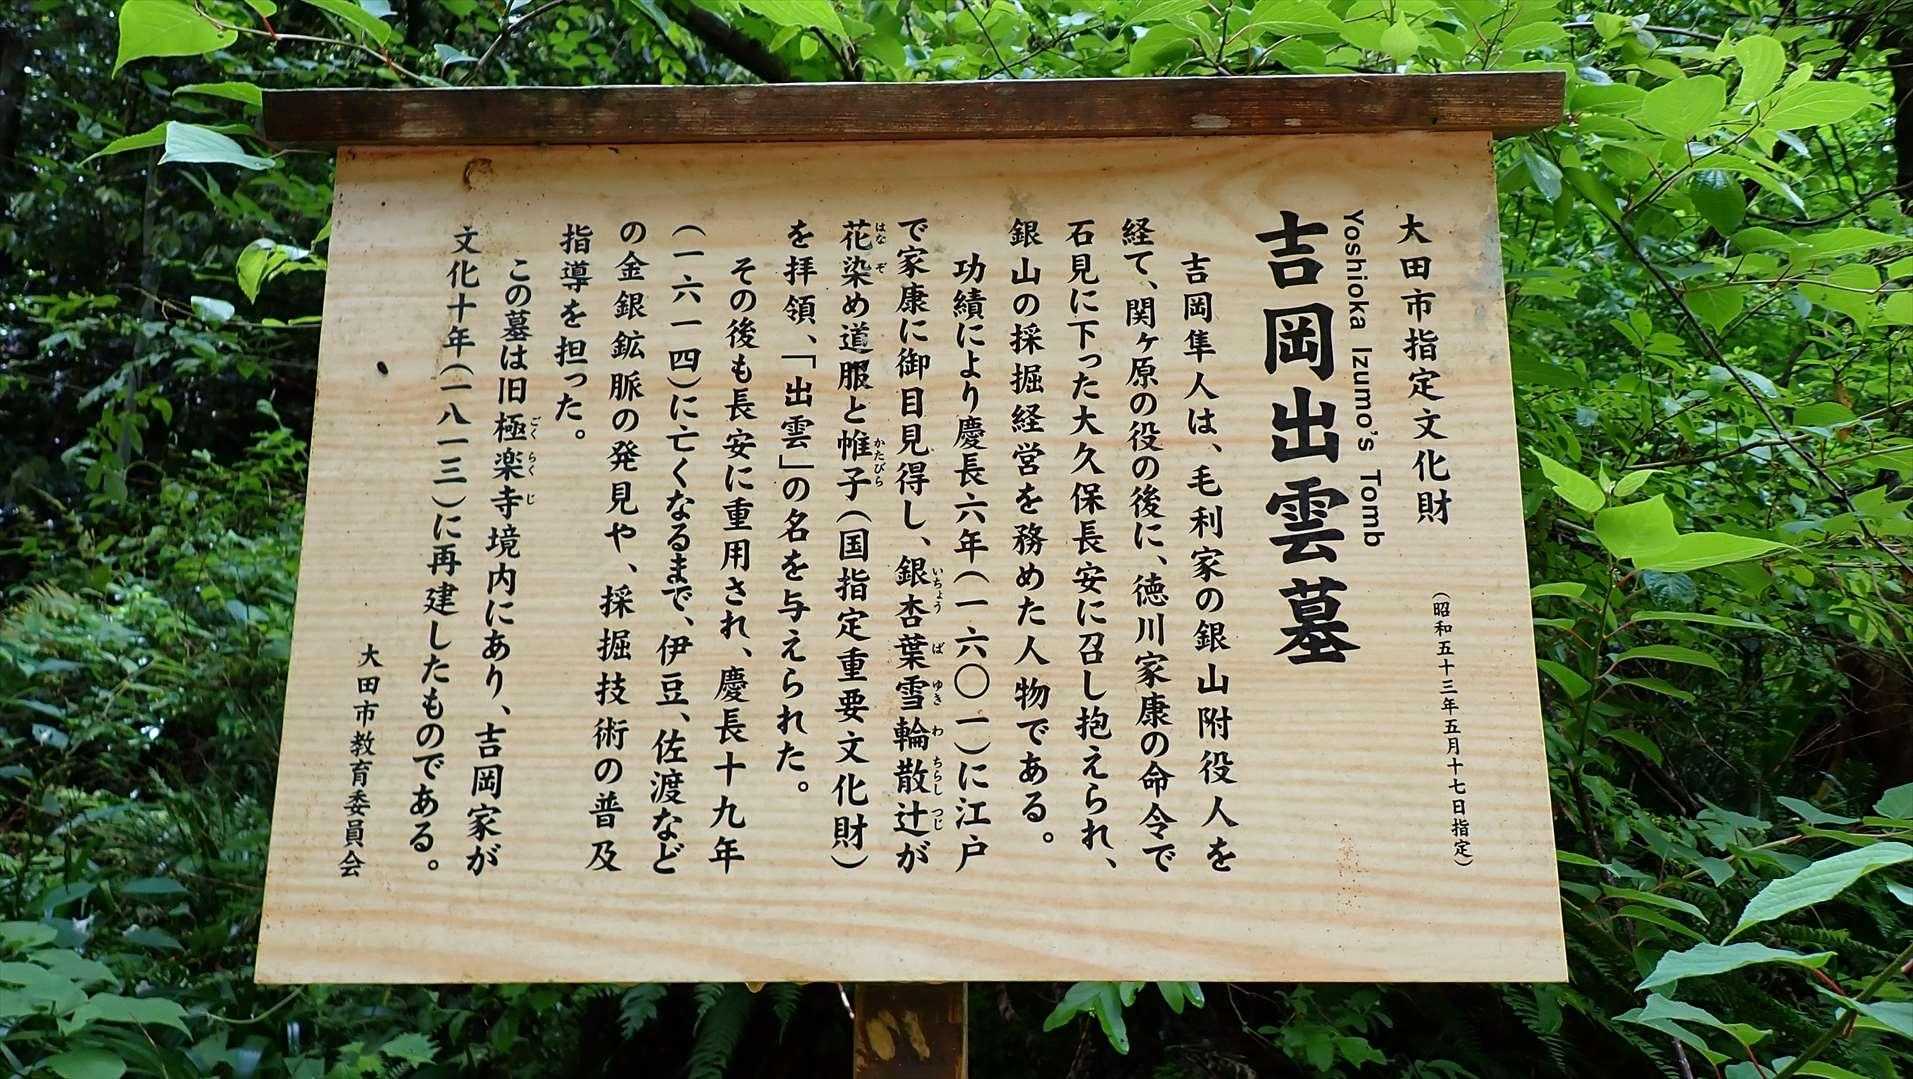 大田市指定文化財
(昭和五十三年五月十七日指定)
Yoshioka Izumo's Tomb
吉岡出雲墓
吉岡隼人は、毛利家の銀山附役人を
経て、関ヶ原の役の後に、徳川家康の命令で
石見に下った大久保長安に召し抱えられ、
銀山の採掘経営を務めた人物である。
功績により慶長六年(一六〇一)に江戸
で家康に御目見得し、銀杏葉雪輪散辻が
いちょう ば ゆき わ ちらし つじ
花染め道服と帷子(国指定重要文化財)
はな ぞ かたびら
を拝領、「出雲」の名を与えられた。
その後も長安に重用され、慶長十九年
(一六一四)に亡くなるまで、伊豆、佐渡など
の金銀鉱脈の発見や、採掘技術の普及
指導を担った。
この墓は旧極楽寺境内にあり、吉岡家が
ごく らく じ
文化十年(一八一三)に再建したものである。
大田市教育委員会